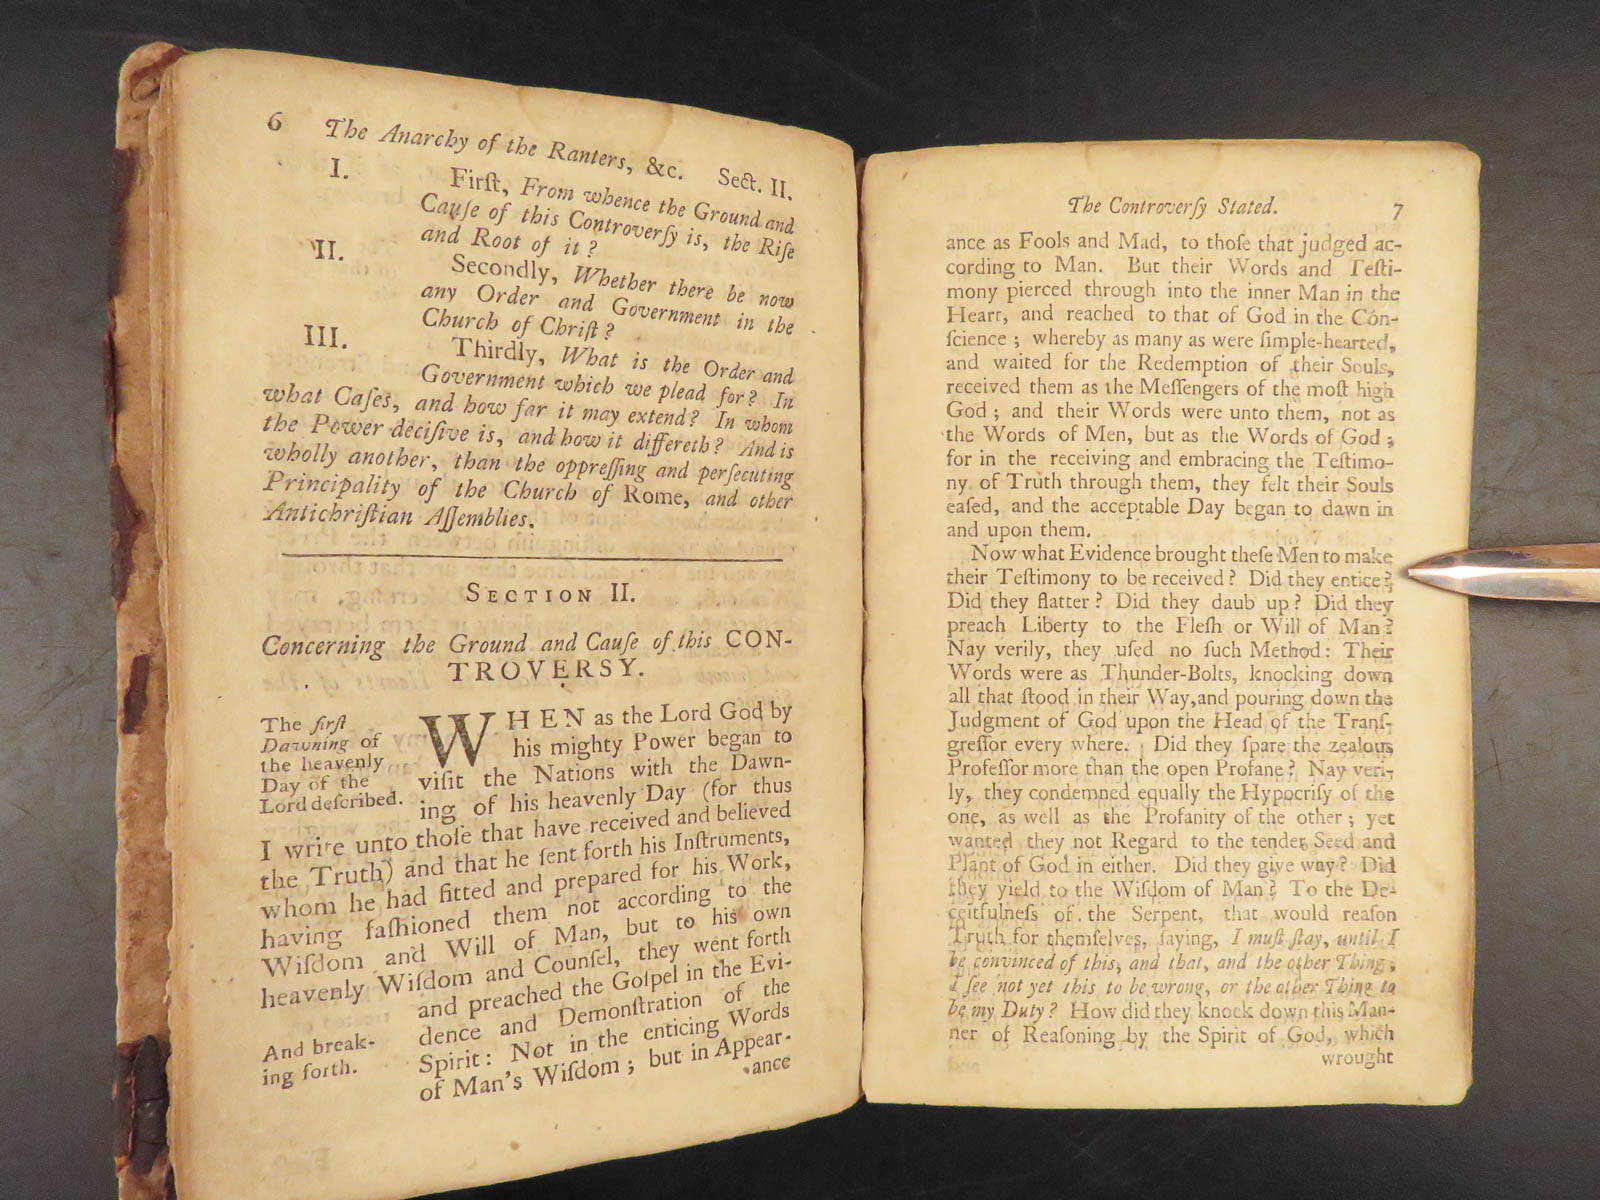 6 The Anarchy of the Ranters, &c. Sect. II.
I. Firſt, From whence the Ground and
Cauſe of this Controverſy is, the Riſe
and Root of it?
II. Secondly, Whether there be now
any Order and Government in the
Church of Chriſt?
III. Thirdly, What is the Order and
Government which we plead for? In
what Caſes, and how far it may extend? In whom
the Power deciſive is, and how it differeth? And is
wholly another, than the oppreſſing and perſecuting
Principality of the Church of Rome, and other
Antichriſtian Aſſemblies.
SECTION II.
Concerning the Ground and Cauſe of this CON-
TROVERSY.
The firſt
Dawning of
the heavenly
Day of the
Lord deſcribed.
WHEN as the Lord God by
his mighty Power began to
viſit the Nations with the Dawn-
ing of his heavenly Day (for thus
I write unto thoſe that have received and believed
the Truth) and that he ſent forth his Inſtruments,
whom he had fitted and prepared for his Work,
having faſhioned them not according to the
Wiſdom and Will of Man, but to his own
heavenly Wiſdom and Counſel, they went forth
And break-
ing forth.
and preached the Goſpel in the Evi-
dence and Demonſtration of the
Spirit: Not in the enticing Words
of Man's Wiſdom; but in Appear-
ance
The Controverſy Stated. 7
ance as Fools and Mad, to thoſe that judged ac-
cording to Man. But their Words and Teſti-
mony pierced through into the inner Man in the
Heart, and reached to that of God in the Con-
ſcience; whereby as many as were ſimple-hearted,
and waited for the Redemption of their Souls,
received them as the Meſſengers of the moſt high
God; and their Words were unto them, not as
the Words of Men, but as the Words of God;
for in the receiving and embracing the Teſtimo-
ny of Truth through them, they felt their Souls
eaſed, and the acceptable Day began to dawn in
and upon them.
Now what Evidence brought theſe Men to make
their Teſtimony to be received? Did they entice?
Did they flatter? Did they daub up? Did they
preach Liberty to the Fleſh or Will of Man?
Nay verily, they uſed no ſuch Method: Their
Words were as Thunder-Bolts, knocking down
all that ſtood in their Way, and pouring down the
Judgment of God upon the Head of the Tranſ-
greſſor every where. Did they ſpare the zealous
Profeſſor more than the open Profane? Nay veri-
ly, they condemned equally the Hypocriſy of the
one, as well as the Profanity of the other; yet
wanted they not Regard to the tender Seed and
Plant of God in either. Did they give way? Did
they yield to the Wiſdom of Man? To the De-
ceitfulneſs of the Serpent, that would reaſon
Truth for themſelves, ſaying, I muſt ſtay, until I
be convinced of this, and that, and the other Thing;
I ſee not yet this to be wrong, or the other Thing to
be my Duty? How did they knock down this Man-
ner of Reaſoning by the Spirit of God, which
wrought